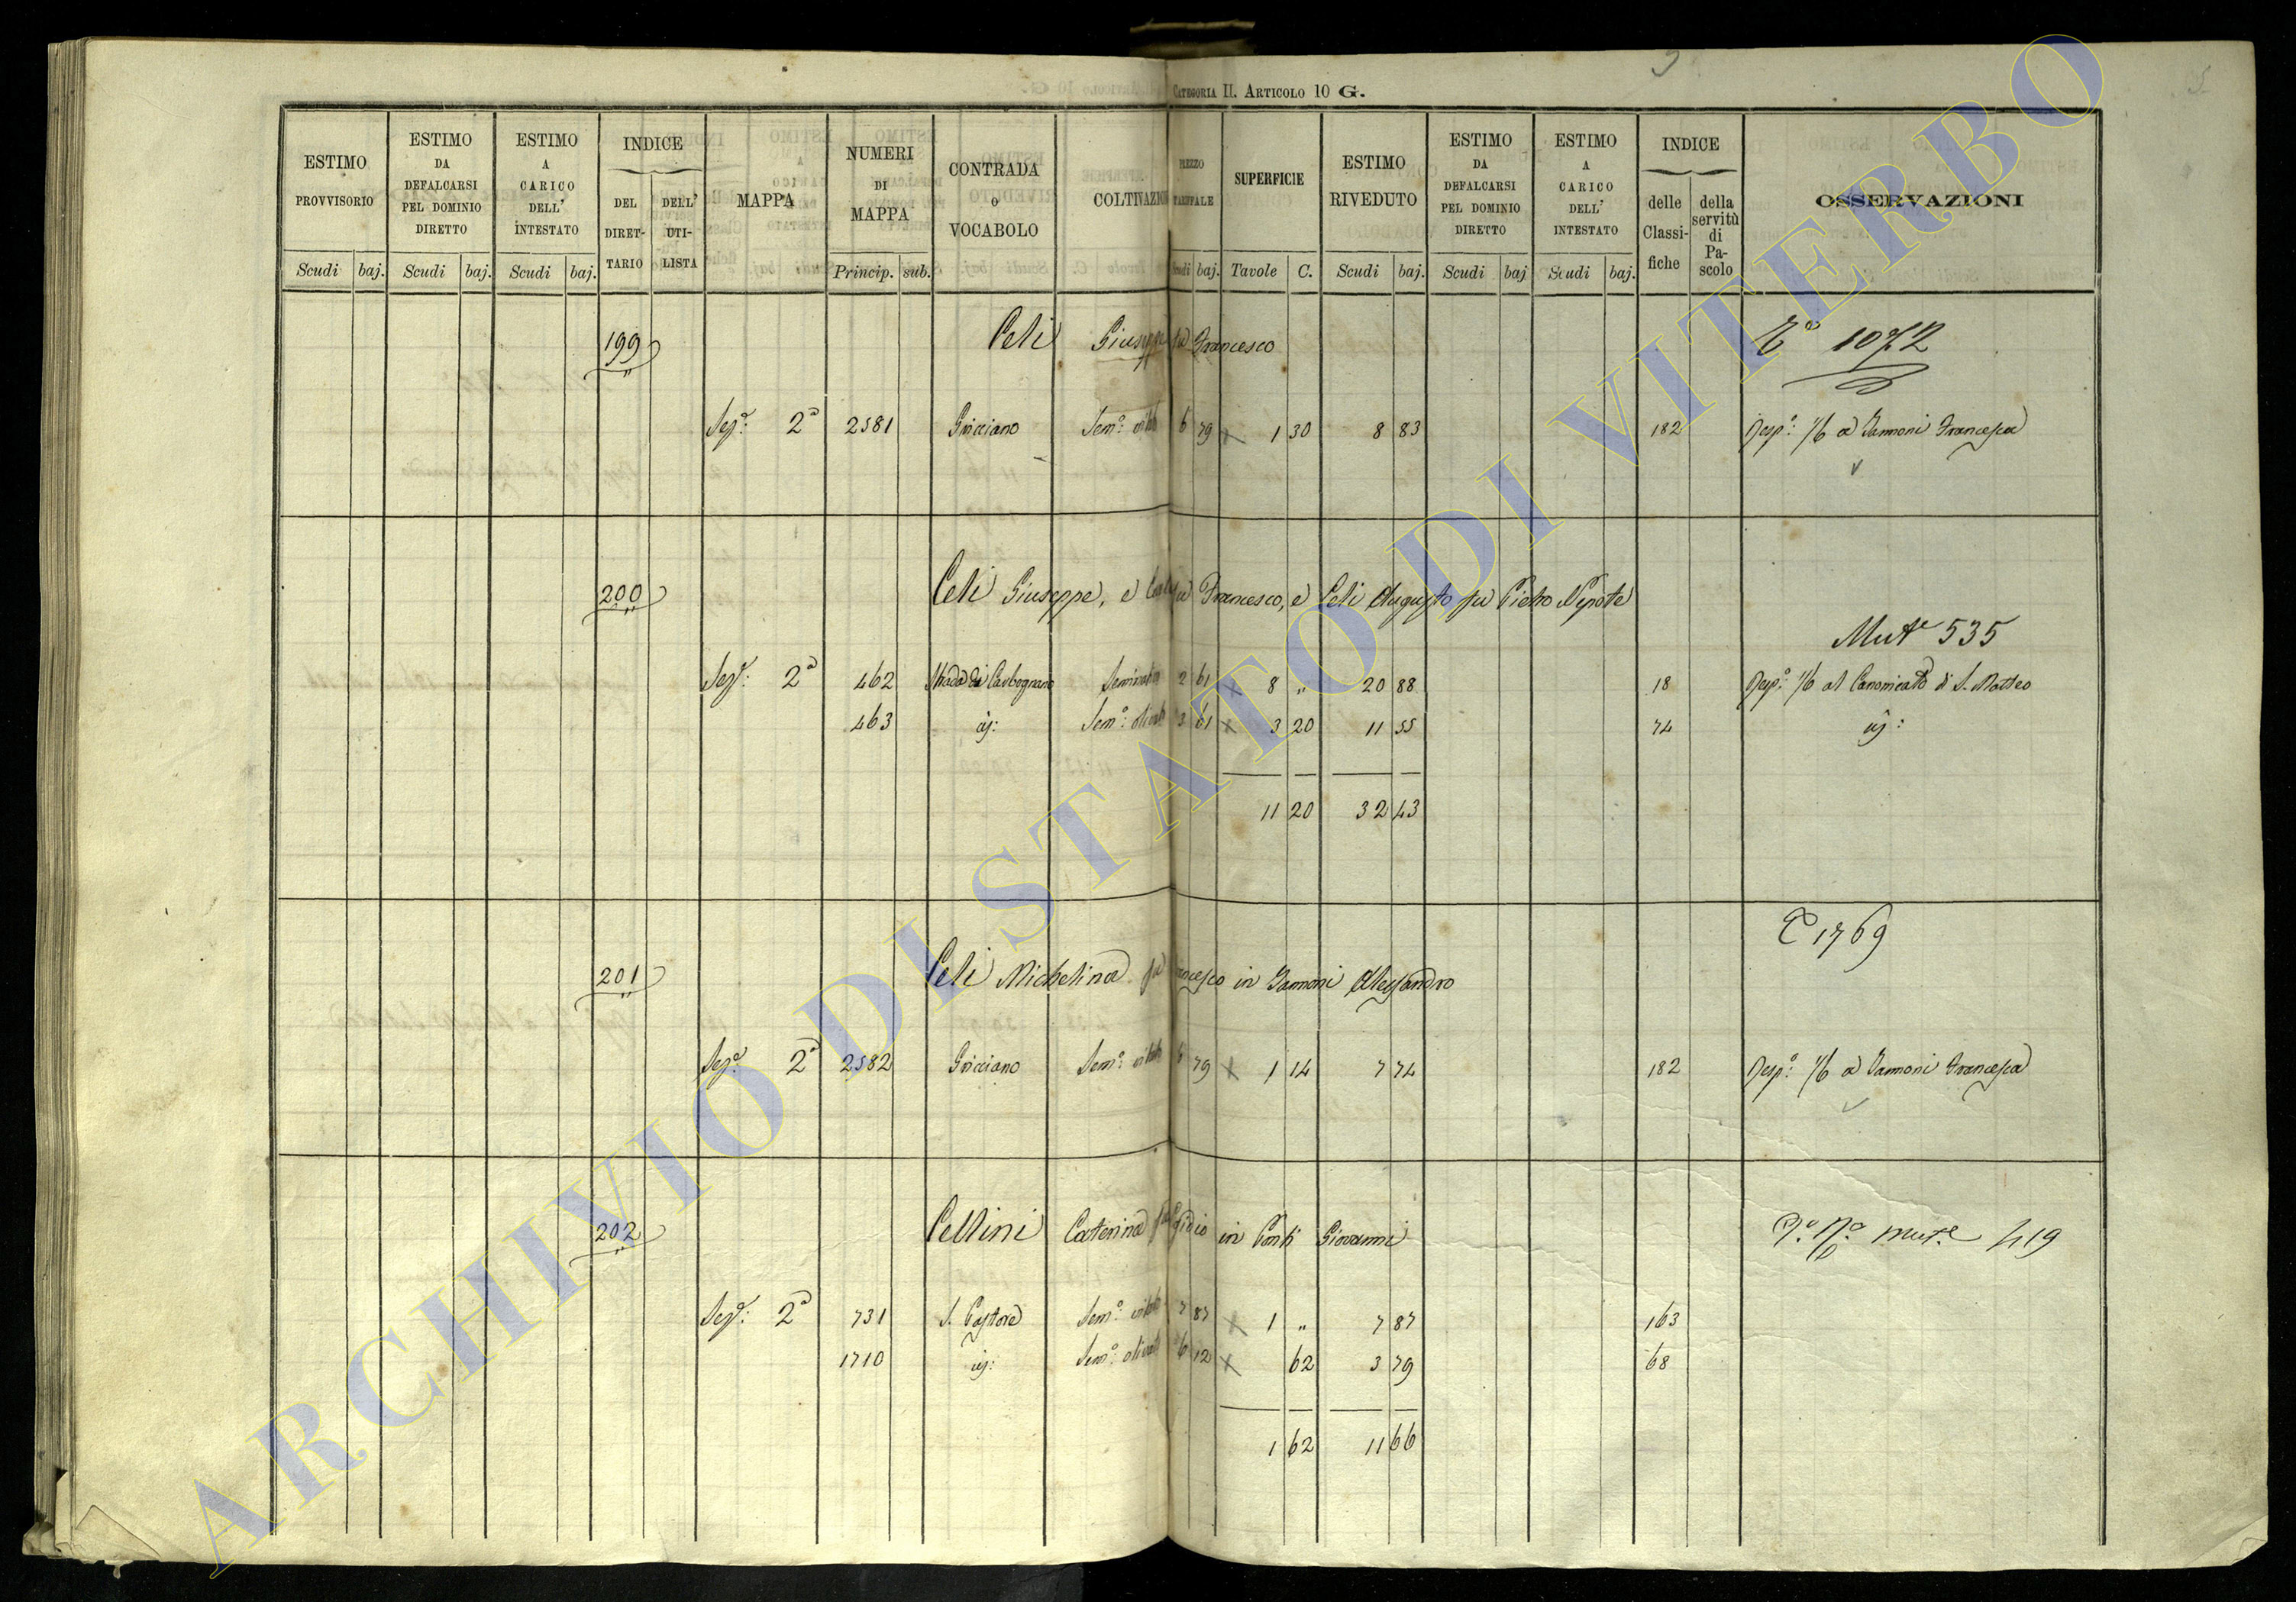 CATEGORIA II. ARTICOLO 10 G.
ESTIMO PROVVISORIO
ESTIMO DA DEFALCARSI PEL DOMINIO DIRETTO
ESTIMO A CARICO DELL' INTESTATO
INDICE
DEL DIRETTARIO
DELL' UTILISTA
MAPPA
NUMERI DI MAPPA
CONTRADA o VOCABOLO
COLTIVAZION
SUPERFICIE
ESTIMO RIVEDUTO
ESTIMO DA DEFALCARSI PEL DOMINIO DIRETTO
ESTIMO A CARICO DELL' INTESTATO
INDICE
delle Classifiche
della servitù di Pascolo
OSSERVAZIONI
Scudi baj. Scudi baj. Scudi baj. Princip. sub. baj. Tavole C. Scudi baj. Scudi baj Scudi baj.
199 Celi Giuseppe fu Francesco 1072
Sez.e 2a 2581 Sem.o vitato 6 79 1 30 8 83 182 Resp.o 1/6 a Jannoni Francesca
200 Celi Giuseppe, e fu Francesco, e Celi Augusto fu Pietro Nepote
Mut.e 535
Sez.e 2a 462 Strada di Carbognano Seminativo 2 61 8 „ 20 88 18 Resp.o 1/6 al Canonicato di S. Matteo
463 Sem.o olivato 3 61 3 20 11 55 74
11 20 32 43
1769
201 Celi Michelina fu Francesco in Jannoni Alessandro
Sez.e 2a 2582 Sem.o vitato 6 79 1 14 7 74 182 Resp.o 1/6 a Jannoni Francesca
202 Cellini Caterina fu Egidio in Conti Giovanni Mut.e 419
Sez.e 2a 731 S. Pastore Sem.o vitato 7 87 1 „ 7 87 163
1710 Sem.o olivato 6 12 62 3 79 68
1 62 11 66
ARCHIVIO DI STATO DI VITERBO